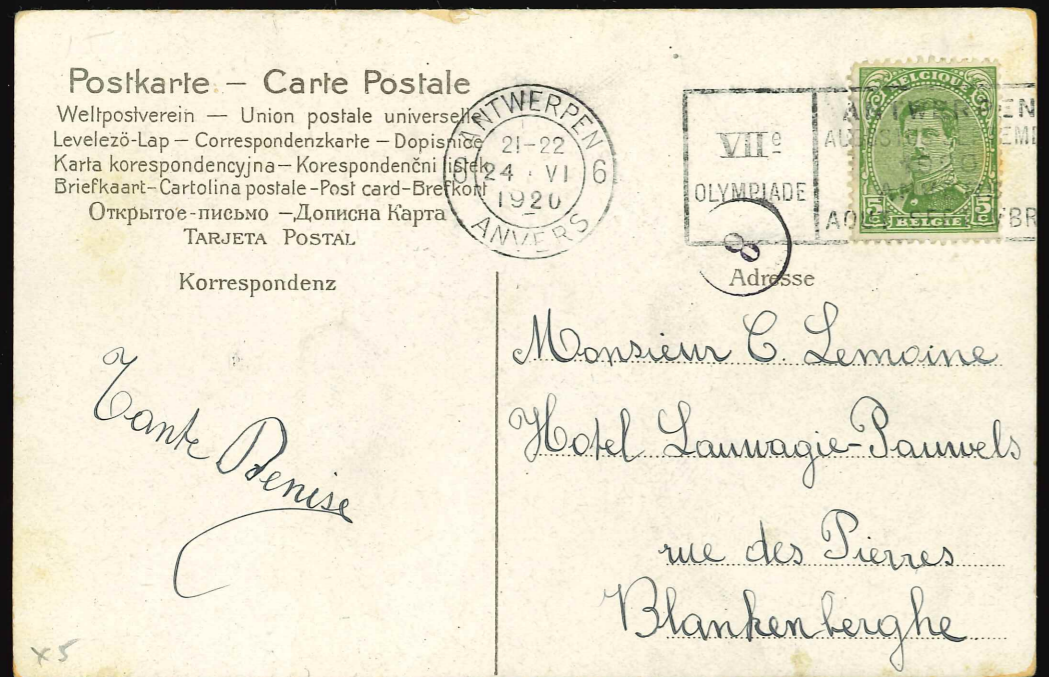 Postkarte – Carte Postale
Weltpostverein — Union postale universelle
Levelezö-Lap – Correspondenzkarte – Dopisnice
Karta korespondencyjna – Korespondenčni listek
Briefkaart – Cartolina postale – Post card – Brefkort
Открытое-письмо – Дописна Карта
TARJETA POSTAL
Korrespondenz
ANTWERPEN
21-22
6 24 VI 6
1920
ANVERS
VIIe
OLYMPIADE
ANTWERPEN
BELGIQUE
5c BELGIË 5c
8
Adresse
Monsieur C. Lemoine
Hotel Lauwagie-Pauwels
rue des Pierres
Blankenberghe
Tante Denise
x5